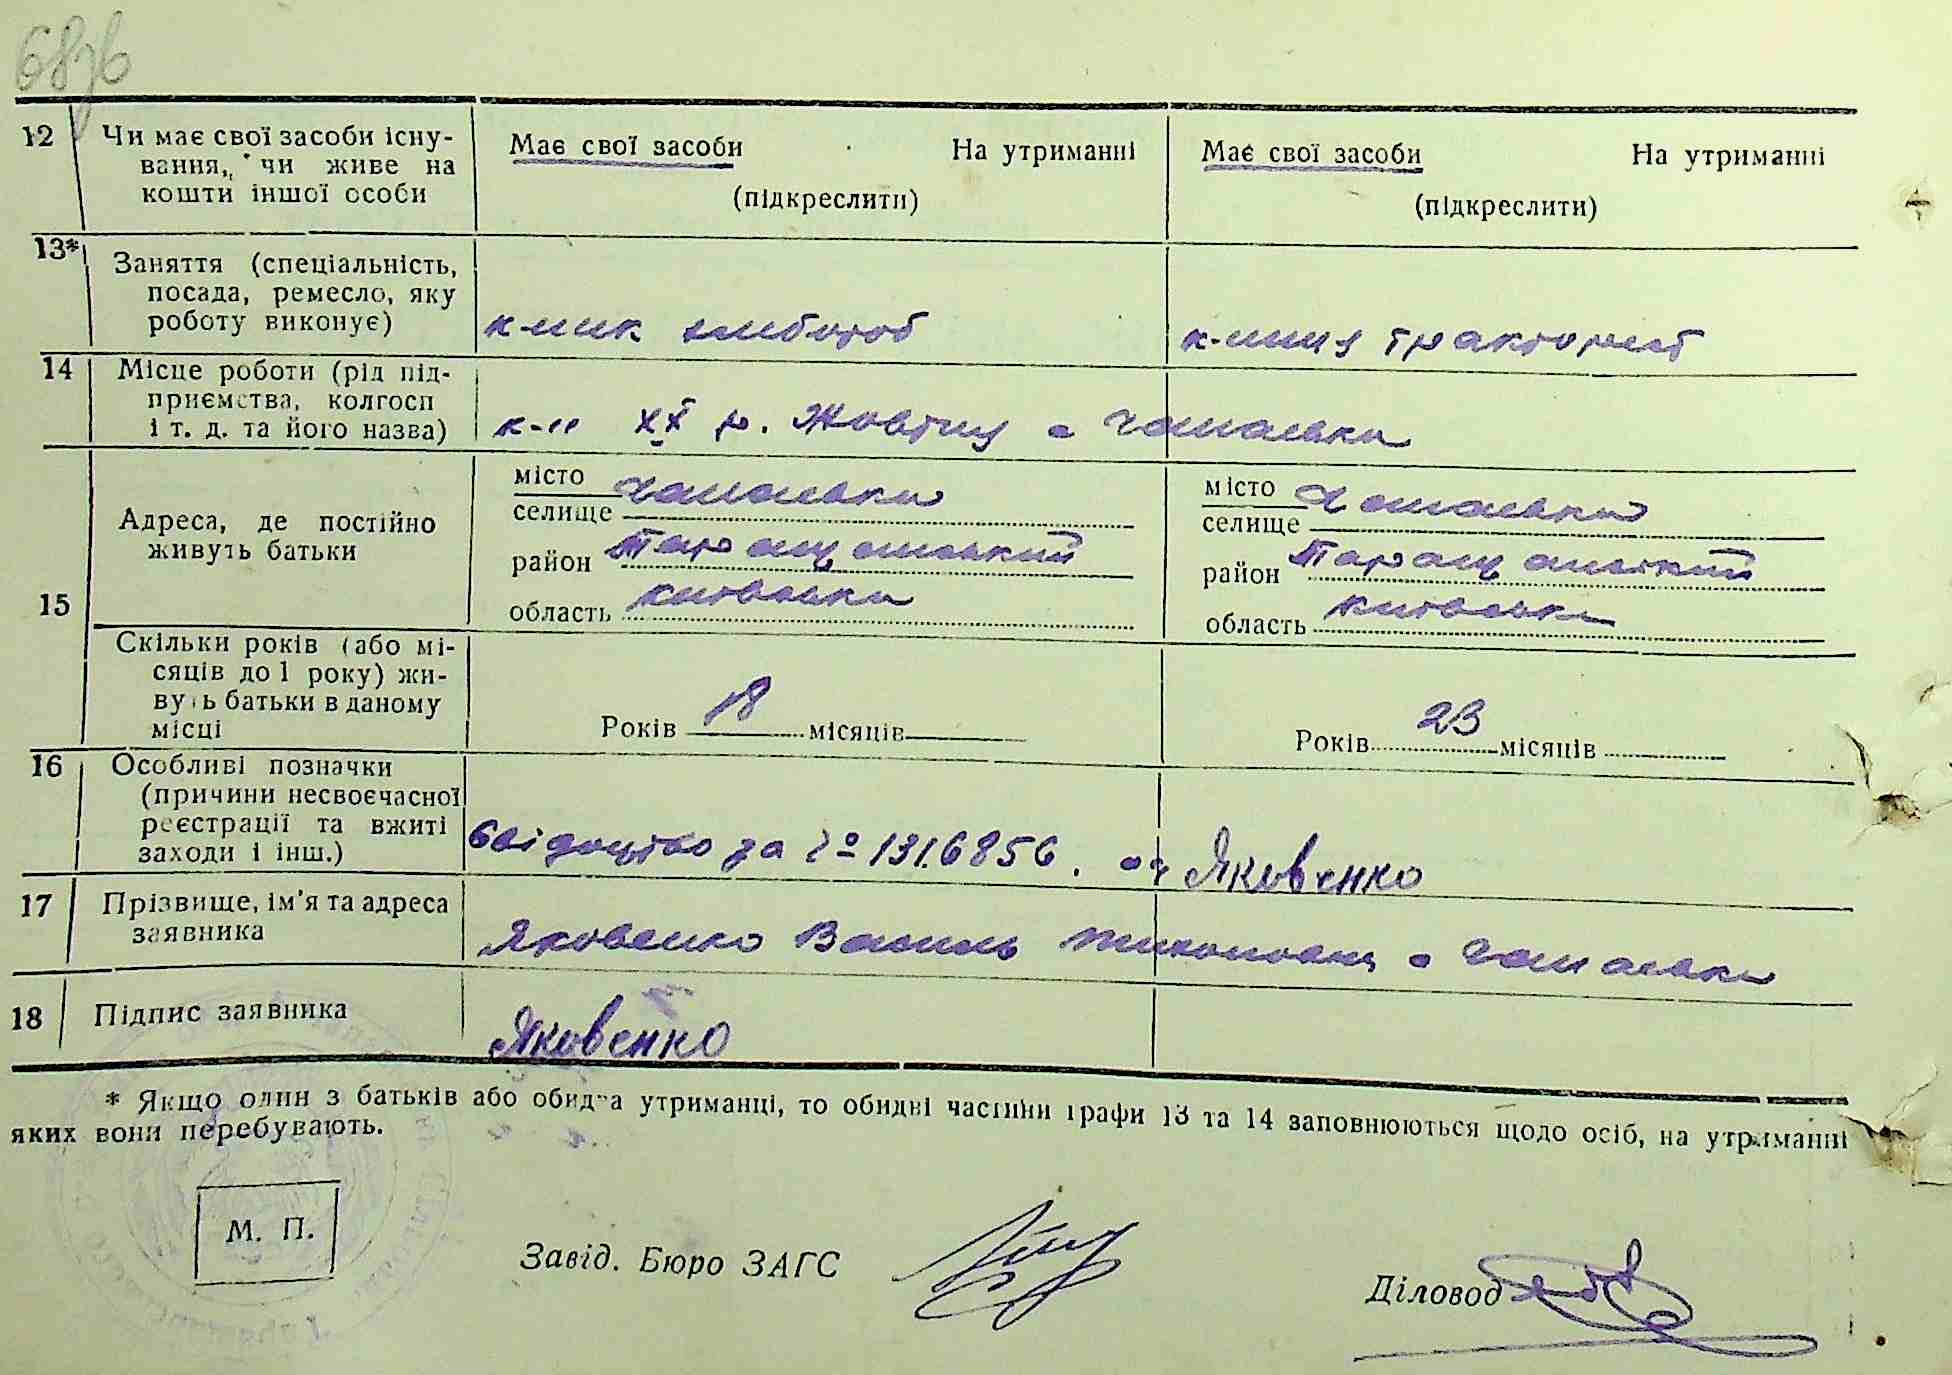 12 Чи має свої засоби існу-
вання, чи живе на
кошти іншої особи
Має свої засоби На утриманні
(підкреслити)
Має свої засоби На утриманні
(підкреслити)
13* Заняття (спеціальність,
посада, ремесло, яку
роботу виконує)
к-ник хлібороб
к-ниця тракторист
14 Місце роботи (рід під-
приємства, колгосп
і т. д. та його назва)
к-п ХХ р. Жовтня с Чапаєвка
15 Адреса, де постійно
живуть батьки
місто
селище Чапаєвка
район Таращанський
область Київська
місто
селище Чапаєвка
район Таращанський
область Київська
Скільки років (або мі-
сяців до 1 року) жи-
вуть батьки в даному
місці
Років 18 місяців
Років 23 місяців
16 Особливі позначки
(причини несвоєчасної
реєстрації та вжиті
заходи і інш.)
Свідоцтво за № 1316856. Яковенко
17 Прізвище, ім'я та адреса
заявника
Яковенко Василь с Чапаєвка
18 Підпис заявника
Яковенко
* Якщо один з батьків або обидва утриманці, то обидві частини графи 13 та 14 заповнюються щодо осіб, на утриманні
яких вони перебувають.
М. П.
Завід. Бюро ЗАГС
Діловод